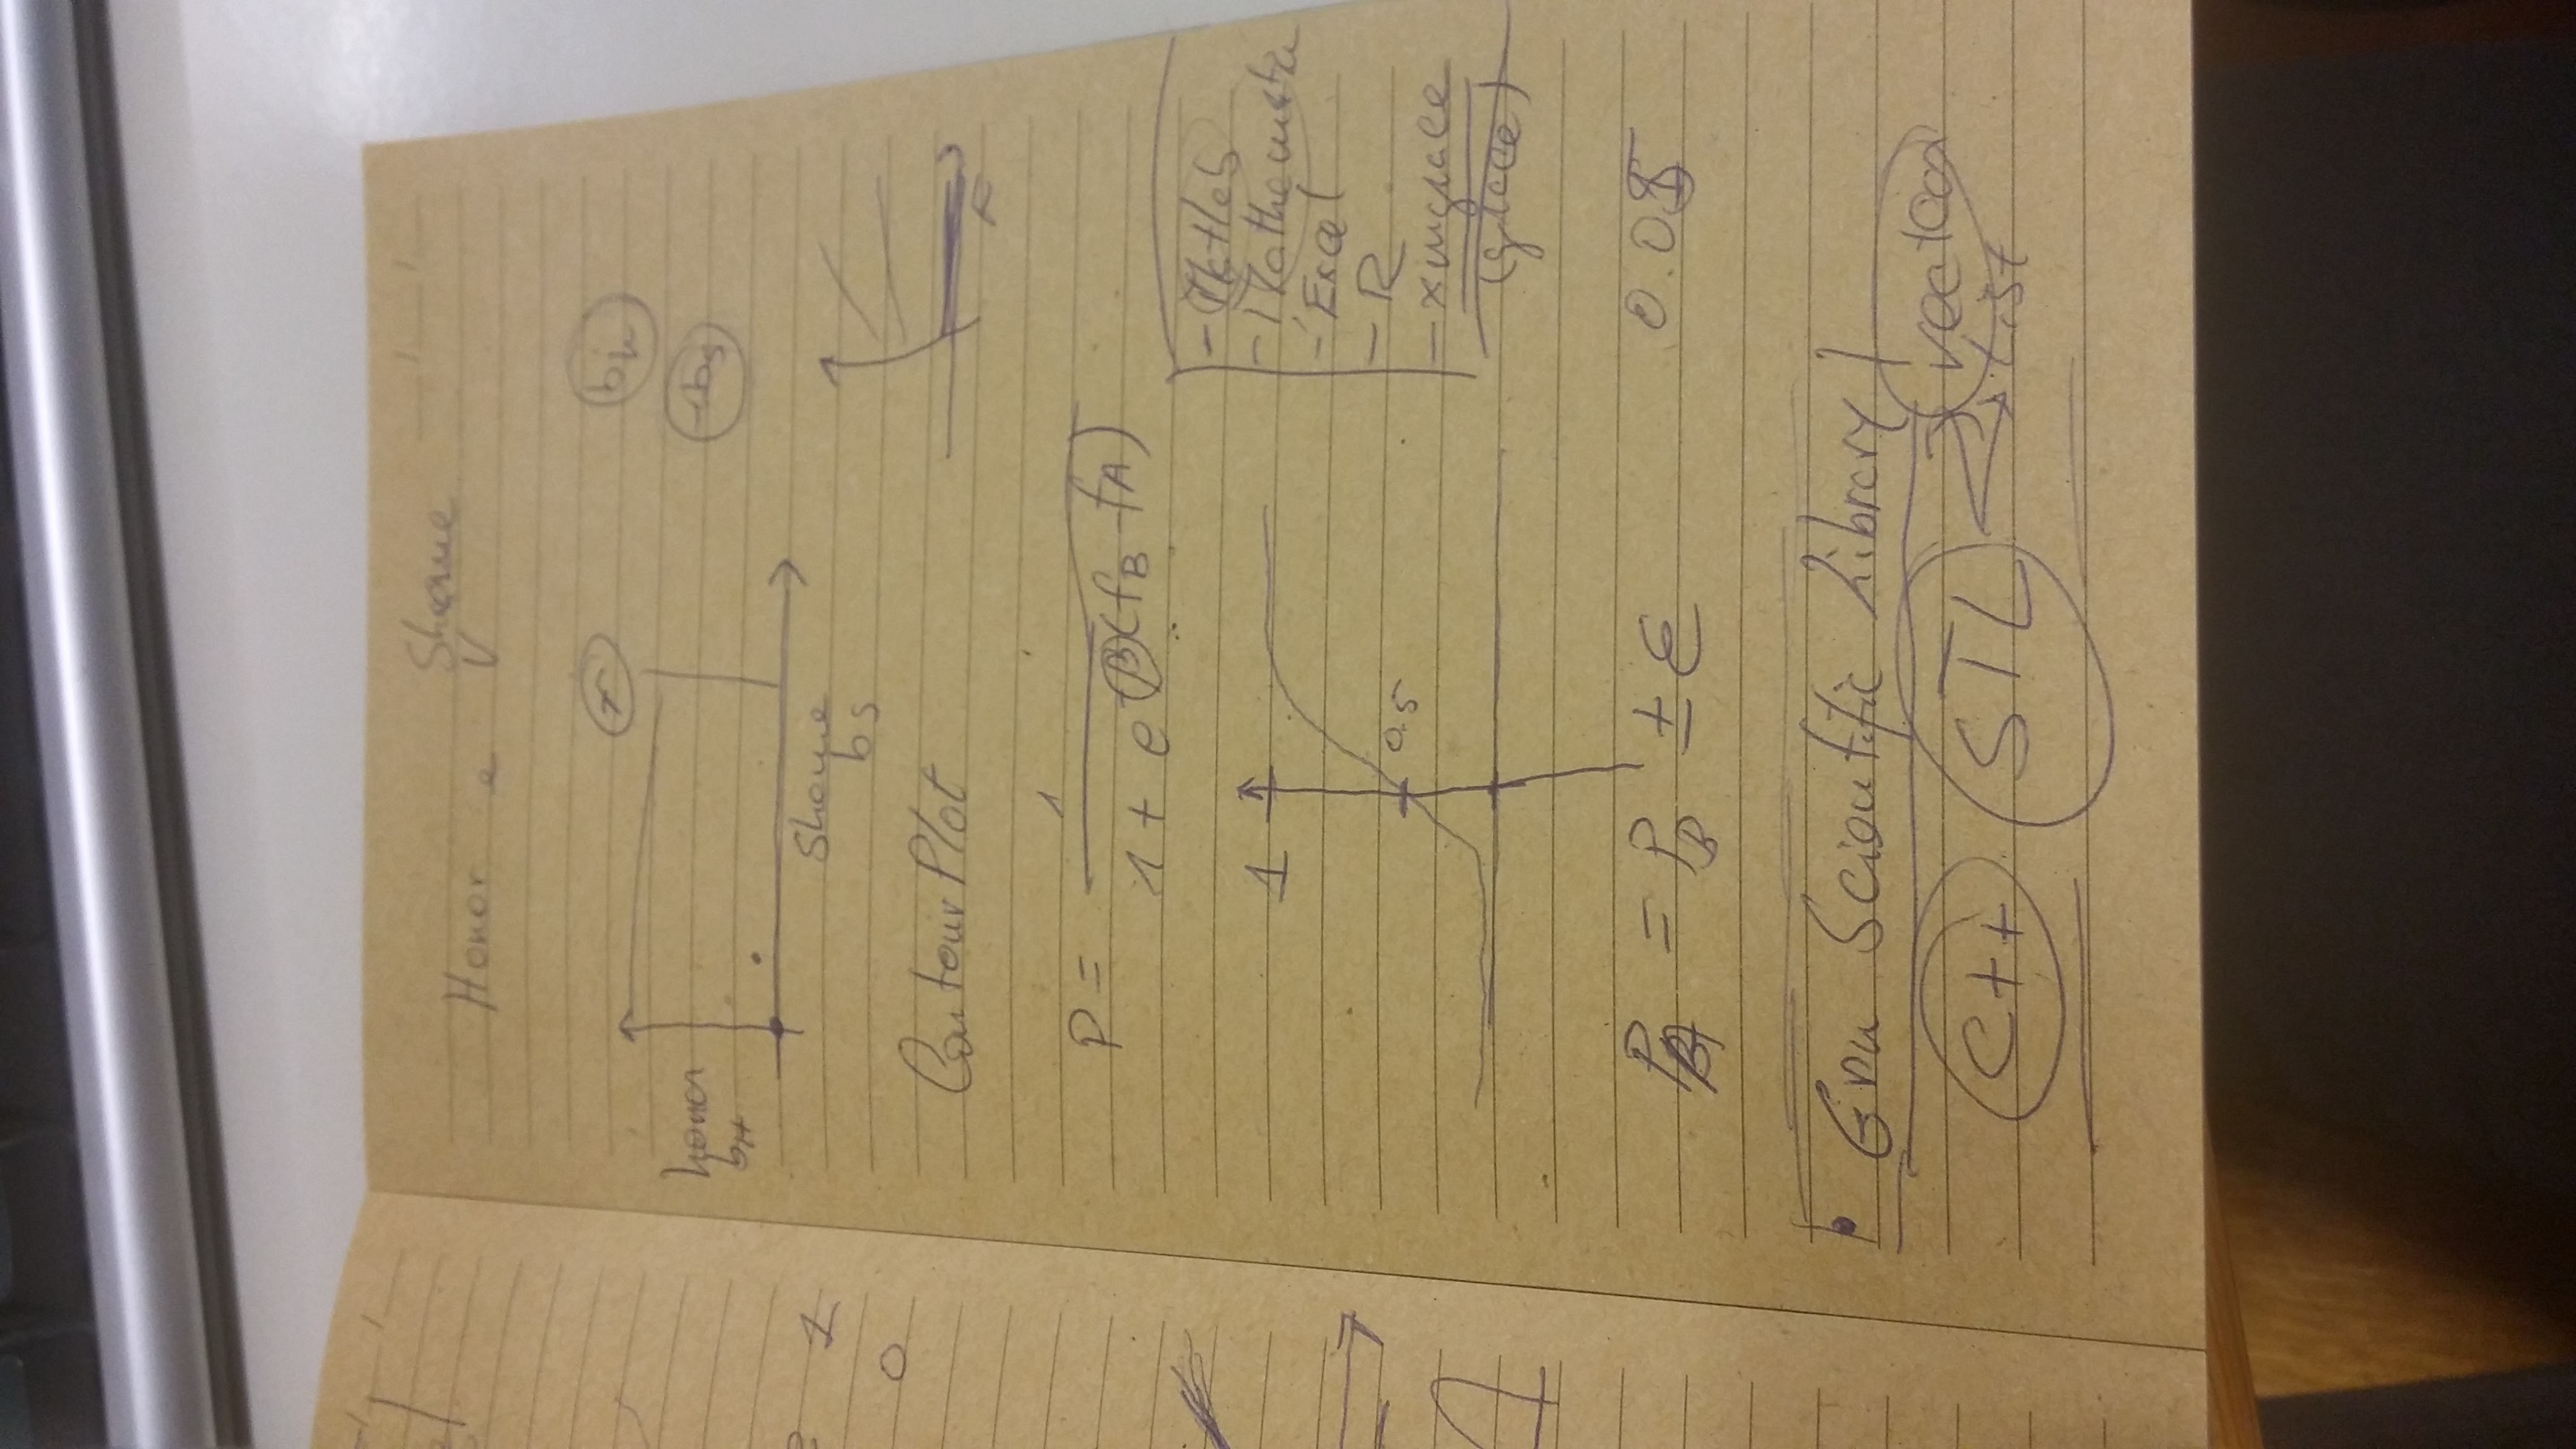 Shame
Honor e V
r
bh
honor
bH
-bs
1
Shame
bs
0
Contour Plot
F
P = 1
1 + e^-β(fB - fA)
- Matlab
1
- Mathematica
- Excel
- R
0.5
- xmgrace
(grace)
PA = PB ± ε 0.05
• Gnu Scientific Library
C++ STL vector
List